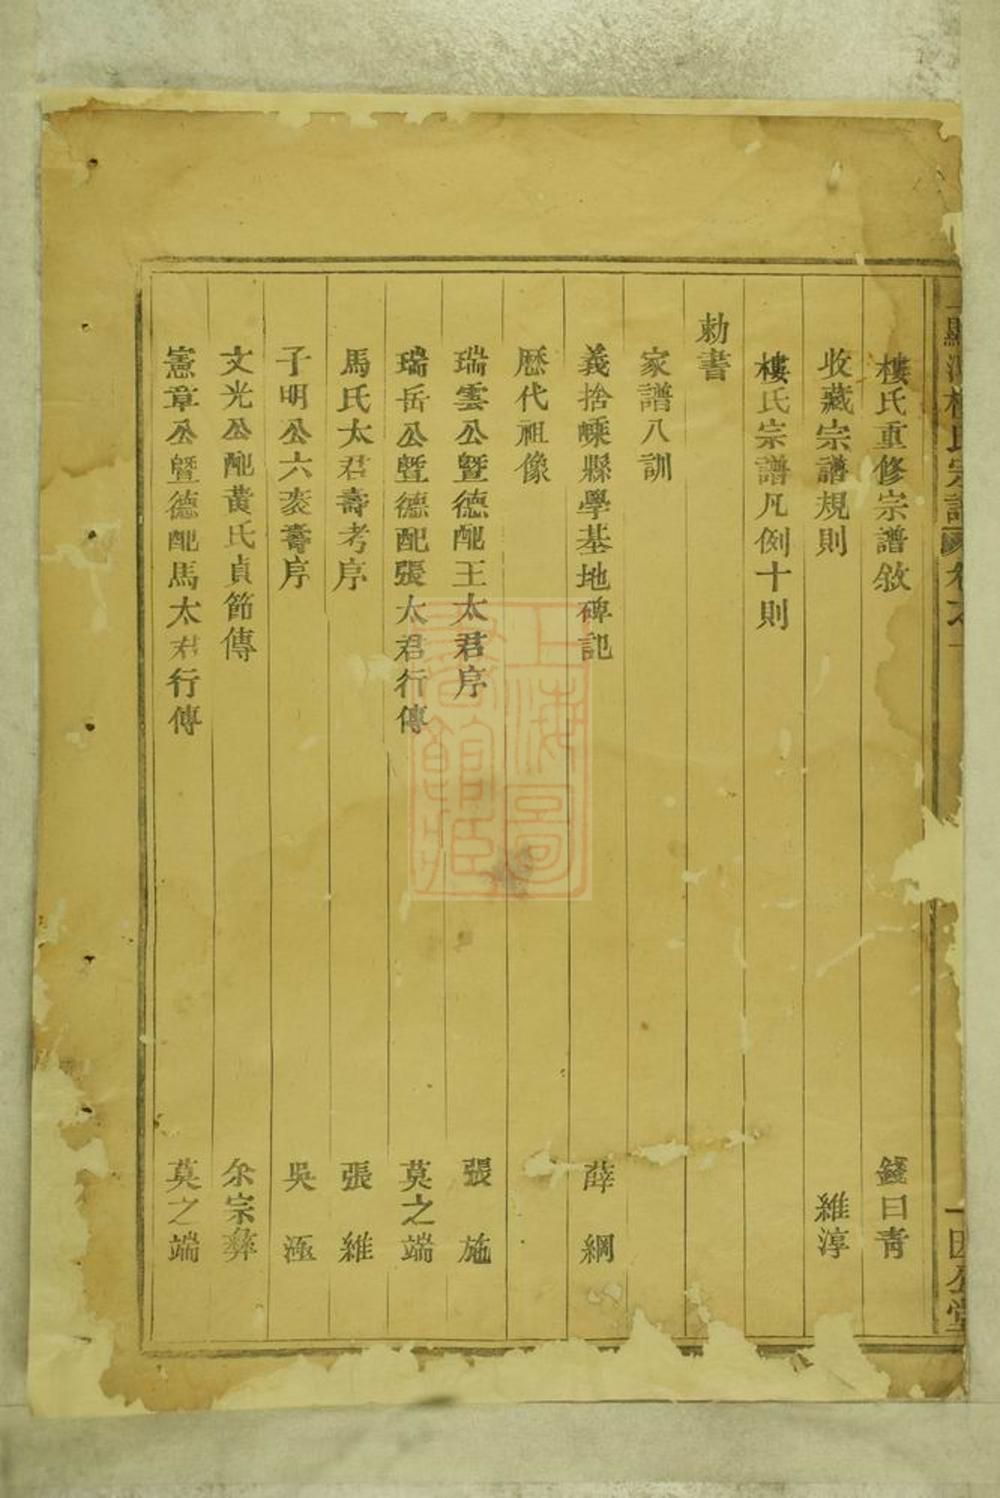 樓氏宗譜 卷之一
樓氏重修宗譜敘 錢日青
收藏宗譜規則 維淳
樓氏宗譜凡例十則
勅書
家譜八訓
義捨嵊縣學基地碑記 薛綱
歷代祖像
瑞雲公暨德配王太君序 張施
瑞岳公暨德配張太君行傳 莫之端
馬氏太君壽考序 張維
子明公六袠壽序 吳極
文光公配黃氏貞節傳 余宗彝
憲章公暨德配馬太君行傳 莫之端
上海圖書館藏